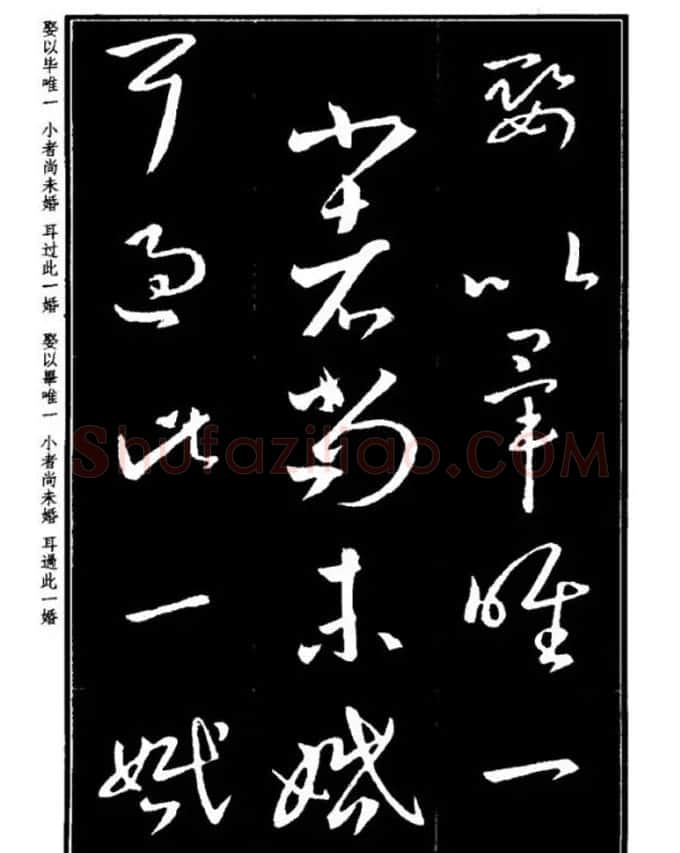 娶以畢唯一
小者尚未婚
耳過此一婚
娶以毕唯一 小者尚未婚 耳过此一婚 娶以畢唯一 小者尚未婚 耳過此一婚
Shufaziliao.COM